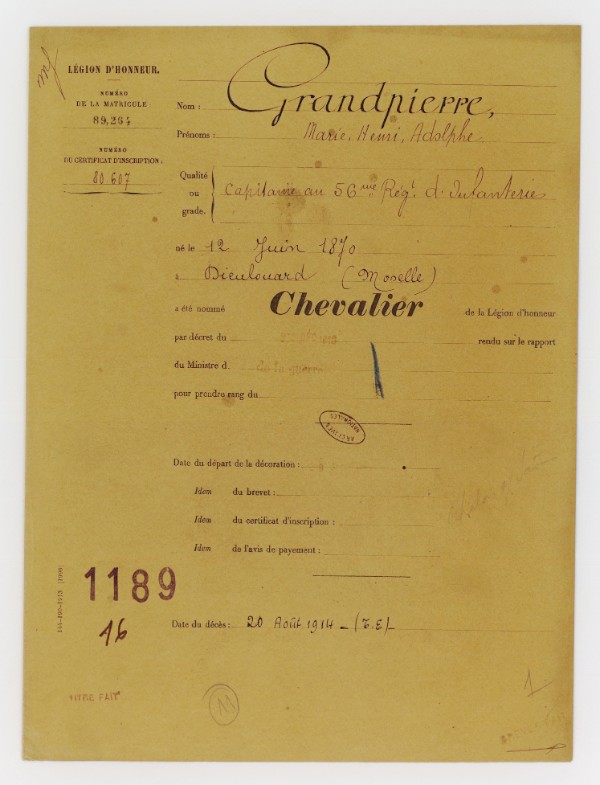 LÉGION D'HONNEUR.
NUMÉRO
DE LA MATRICULE :
89,264
NUMÉRO
DE CERTIFICAT D'INSCRIPTION :
80 607
Nom : Grandpierre,
Prénoms : Marie, Henri, Adolphe.
Qualité
ou
grade.
Capitaine au 56me Régt d'Infanterie
né le 12 Juin 1870
à Dieulouard (Moselle)
a été nommé Chevalier de la Légion d'honneur
par décret du rendu sur le rapport
du Ministre d de la guerre
pour prendre rang du
ARCHIVES NATIONALES
Date du départ de la décoration :
Idem du brevet :
Idem du certificat d'inscription :
Idem de l'avis de payement :
1189
16
Date du décès : 20 Août 1914 - (T.E)-
TITRE FAIT
11
1